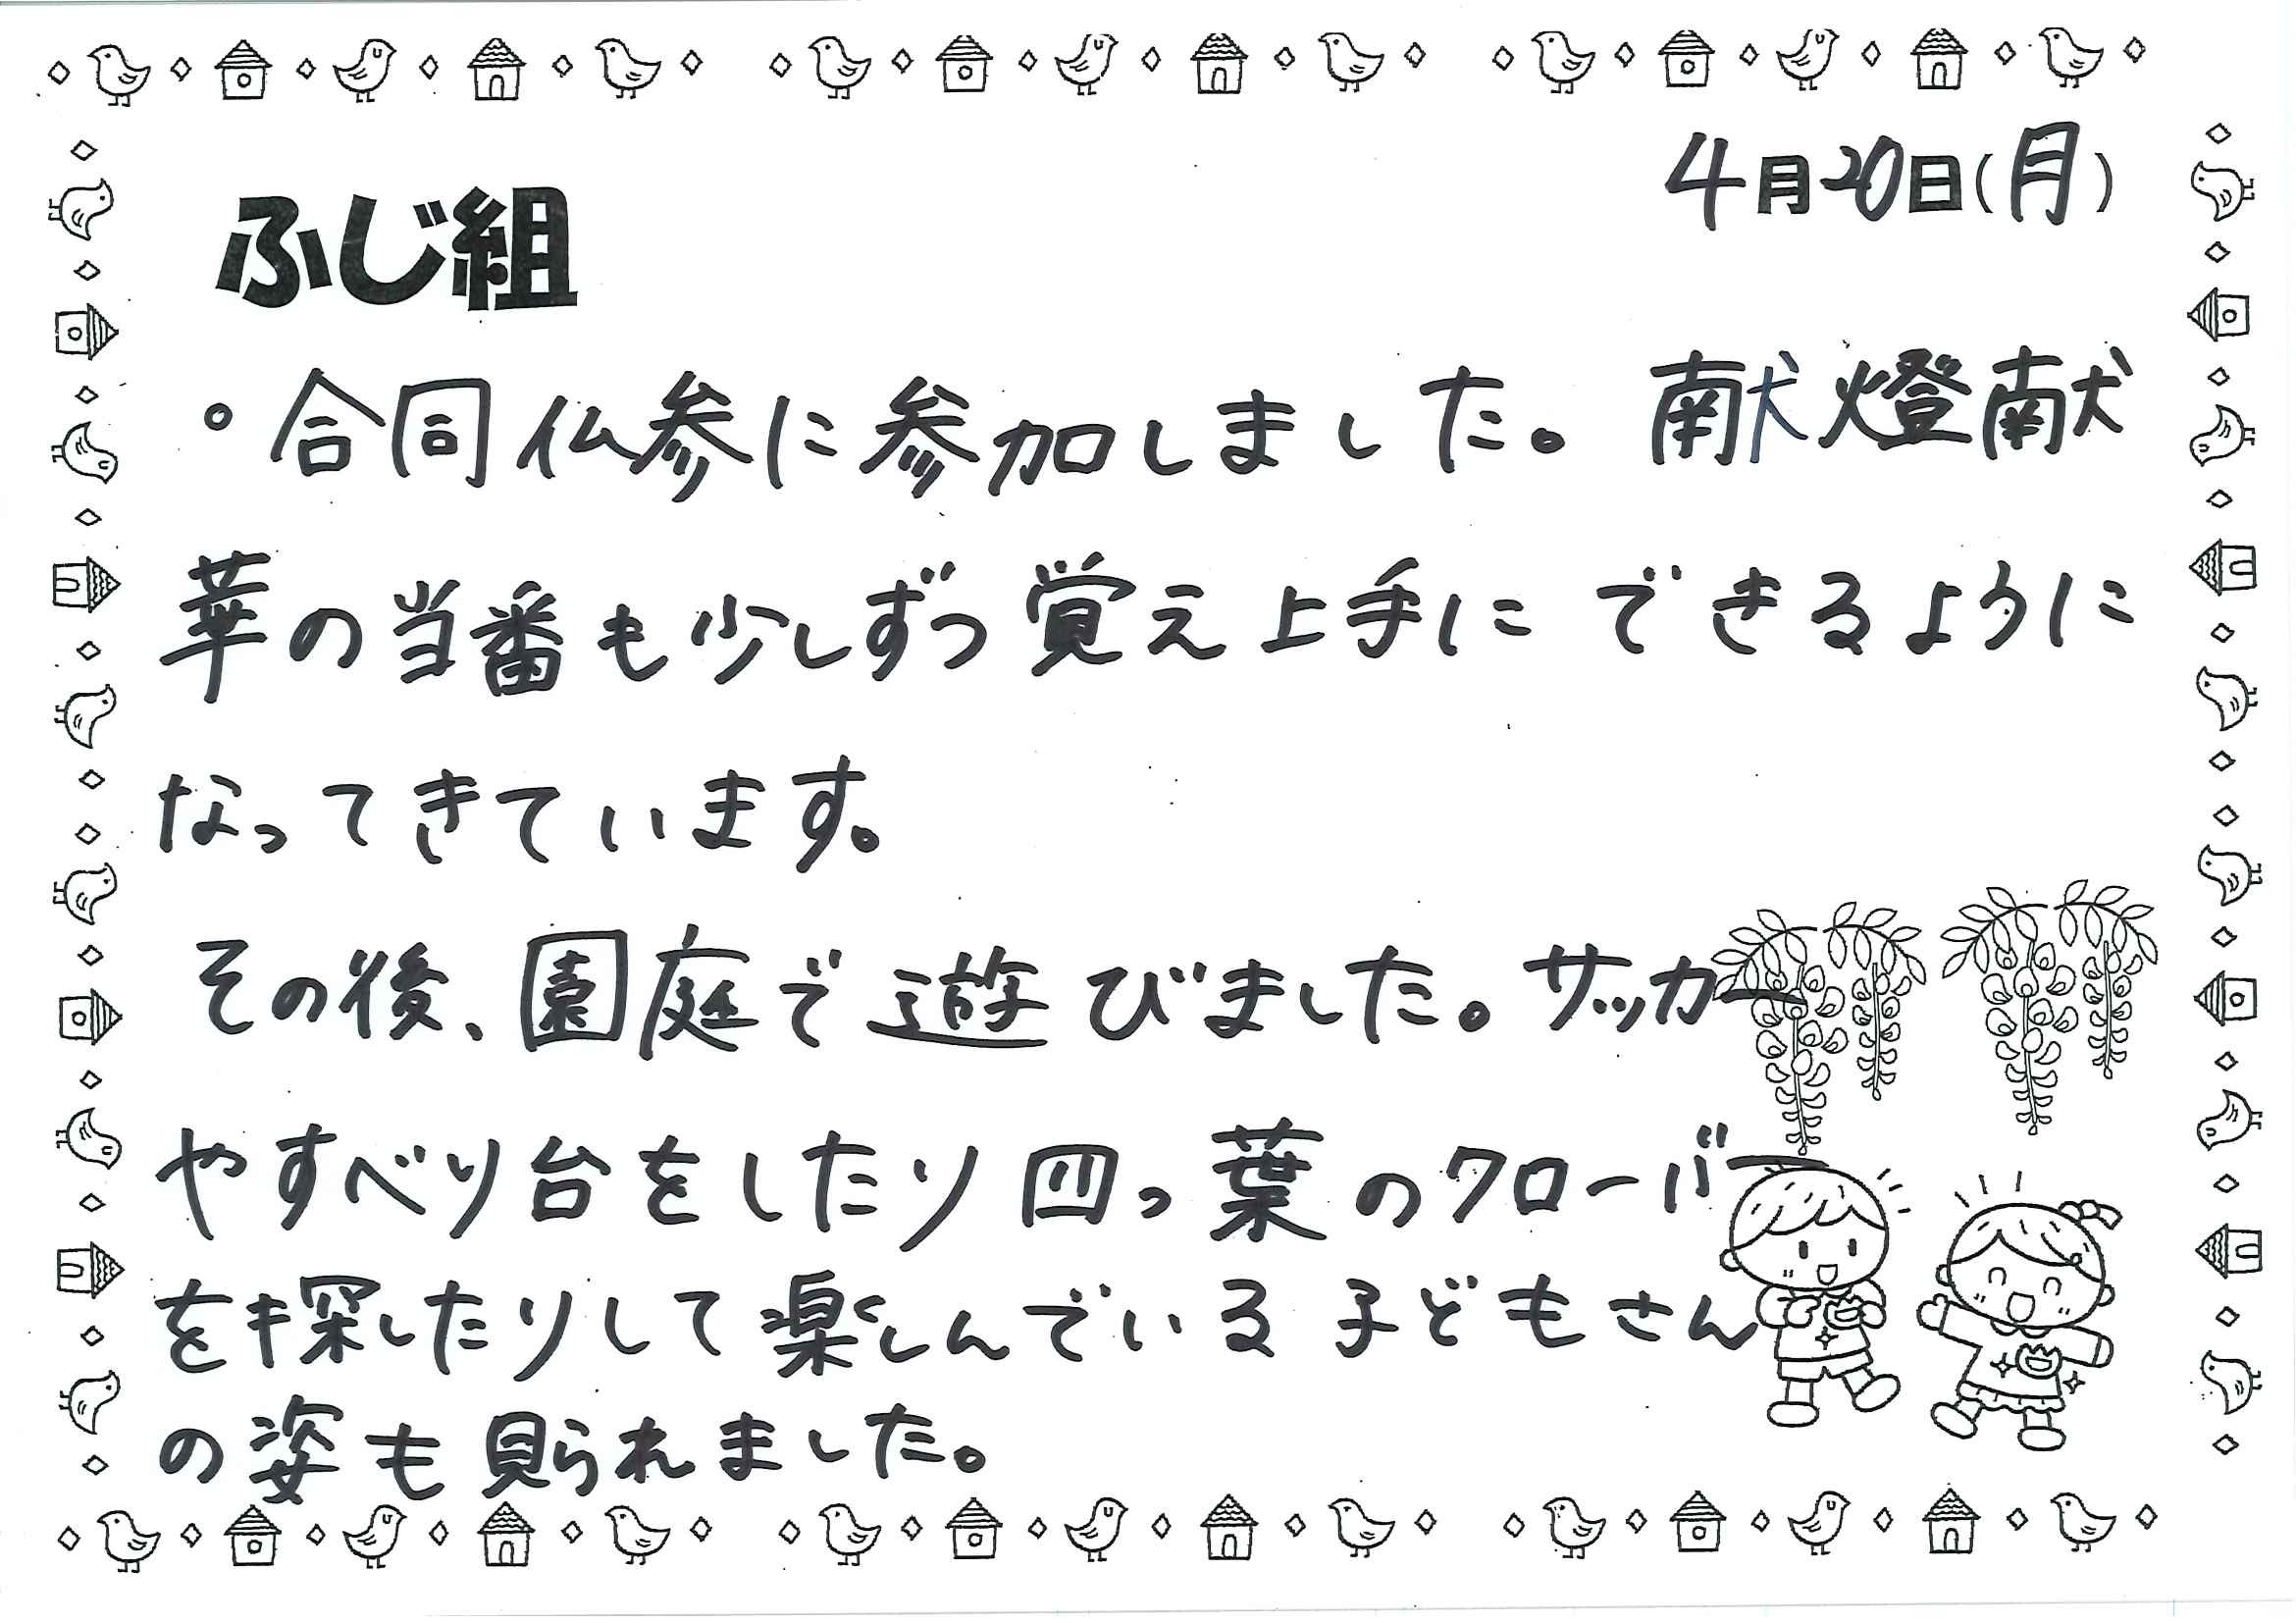 4月20日(月)
ふじ組
。合同仏参に参加しました。献燈献
華の当番も少しずつ覚え上手にできるように
なってきています。
その後、園庭で遊びました。サッカー
やすべり台をしたり四つ葉のクローバー
を探したりして楽しんでいる子どもさん
の姿も見られました。